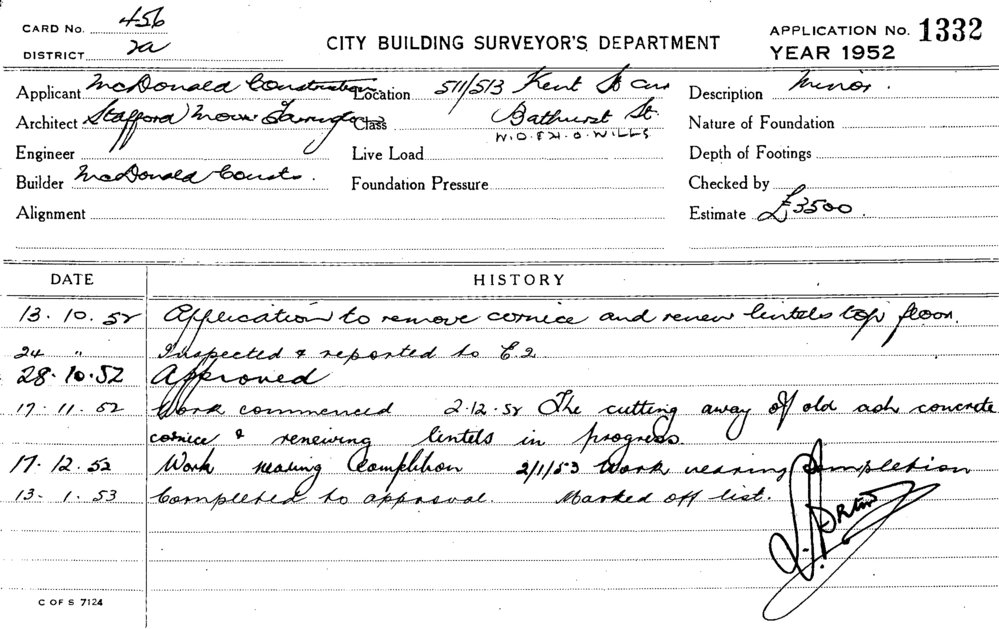 CARD No. 456
DISTRICT 2a
CITY BUILDING SURVEYOR'S DEPARTMENT
APPLICATION No. 1332
YEAR 1952
Applicant McDonald Construction Location 511/513 Kent St Cnr Description Minor.
Architect Stafford Moor Class Bathurst St. Nature of Foundation
W.D. & H.O. WILLS
Engineer Live Load Depth of Footings
Builder McDonald Consts. Foundation Pressure Checked by
Alignment Estimate £3500.
DATE HISTORY
13. 10. 52 Application to remove cornice and renew lintels top floor.
24 " Inspected & reported to C.2
28. 10. 52 Approved
17. 11. 52 Work commenced 2.12.52 The cutting away of old ash concrete
cornice & renewing lintels in progress.
17. 12. 52 Work nearing Completion 2/1/53 Work nearing completion
13. 1. 53 Completed to approval. Marked off list.
C OF S 7124